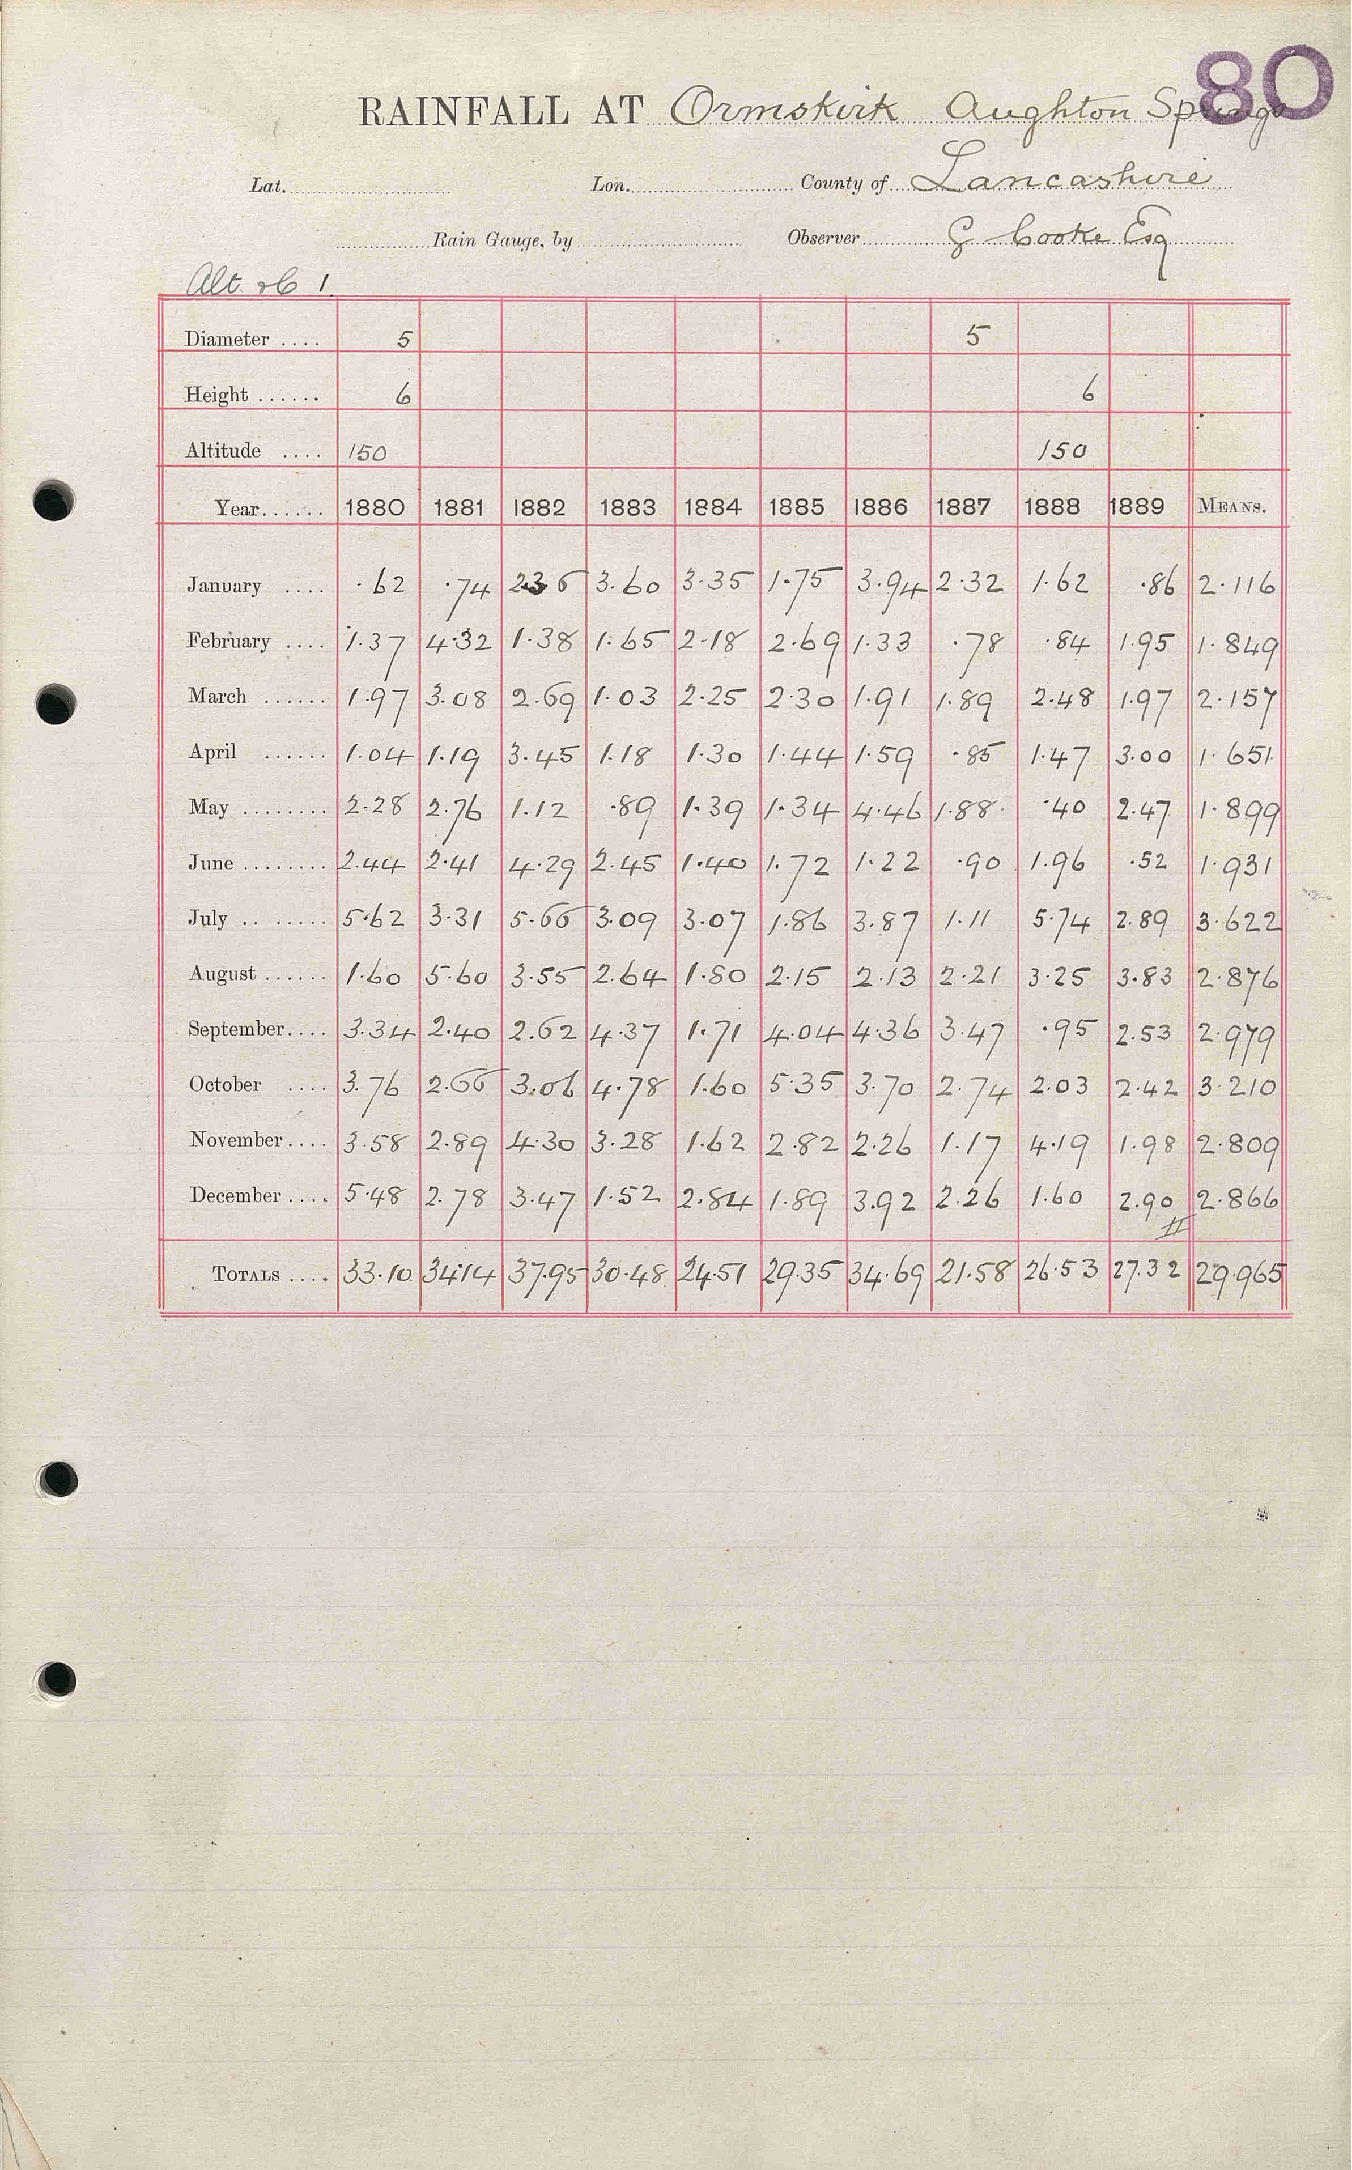 80
RAINFALL AT Ormskirk Aughton Springs
Lat. Lon. County of Lancashire
Rain Gauge, by Observer G Cooke Esq
Alt. 1.
Diameter .... 5 5
Height ...... 6 6
Altitude .... 150 150
Year...... 1880 1881 1882 1883 1884 1885 1886 1887 1888 1889 MEANS.
January .... .62 .74 2.36 3.60 3.35 1.75 3.94 2.32 1.62 .86 2.116
February .... 1.37 4.32 1.38 1.65 2.18 2.69 1.33 .78 .84 1.95 1.849
March ...... 1.97 3.08 2.69 1.03 2.25 2.30 1.91 1.89 2.48 1.97 2.157
April ...... 1.04 1.19 3.45 1.18 1.30 1.44 1.59 .85 1.47 3.00 1.651
May ........ 2.28 2.76 1.12 .89 1.39 1.34 4.46 1.88 .40 2.47 1.899
June ........ 2.44 2.41 4.29 2.45 1.40 1.72 1.22 .90 1.96 .52 1.931
July ........ 5.62 3.31 5.66 3.09 3.07 1.86 3.87 1.11 5.74 2.89 3.622
August ...... 1.60 5.60 3.55 2.64 1.80 2.15 2.13 2.21 3.25 3.83 2.876
September.... 3.34 2.40 2.62 4.37 1.71 4.04 4.36 3.47 .95 2.53 2.979
October .... 3.76 2.66 3.06 4.78 1.60 5.35 3.70 2.74 2.03 2.42 3.210
November.... 3.58 2.89 4.30 3.28 1.62 2.82 2.26 1.17 4.19 1.98 2.809
December .... 5.48 2.78 3.47 1.52 2.84 1.89 3.92 2.26 1.60 2.90 2.866
TOTALS .... 33.10 34.14 37.95 30.48 24.51 29.35 34.69 21.58 26.53 27.32 29.965